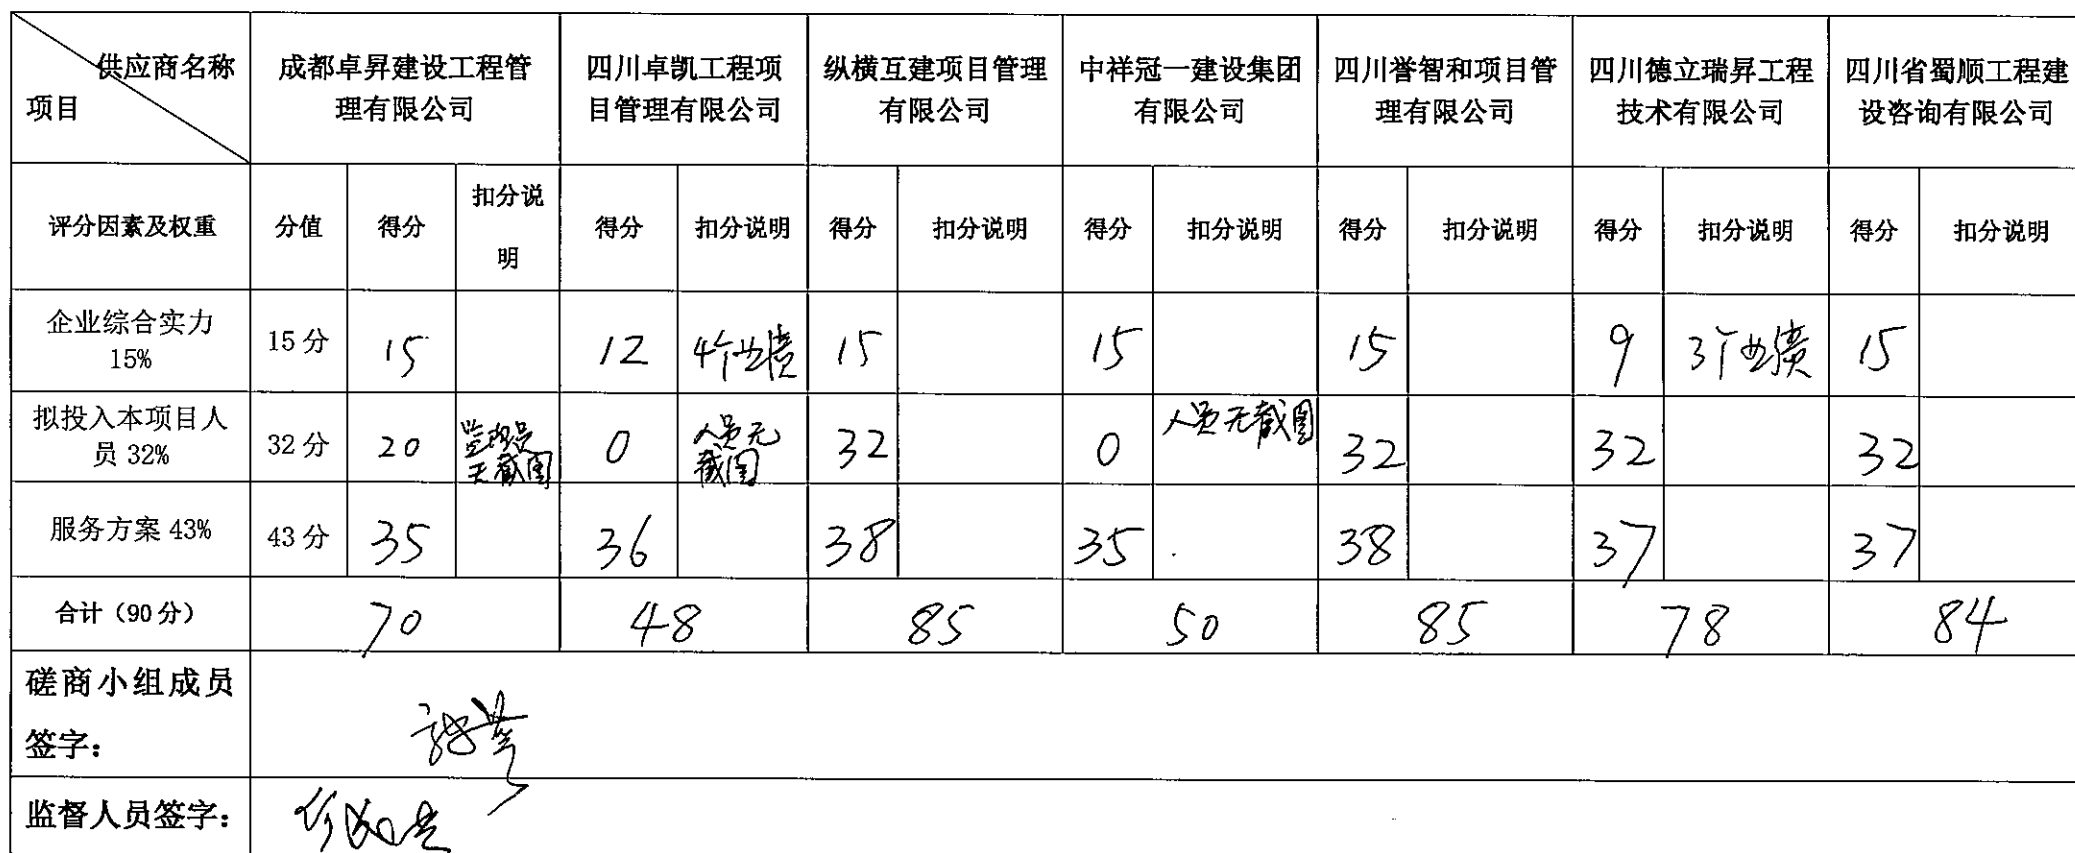 供应商名称
项目
成都卓昇建设工程管
理有限公司
四川卓凯工程项
目管理有限公司
纵横互建项目管理
有限公司
中祥冠一建设集团
有限公司
四川誉智和项目管
理有限公司
四川德立瑞昇工程
技术有限公司
四川省蜀顺工程建
设咨询有限公司
评分因素及权重 分值 得分 扣分说
明 得分 扣分说明 得分 扣分说明 得分 扣分说明 得分 扣分说明 得分 扣分说明 得分 扣分说明
企业综合实力
15%
15分 15 12 4个业绩 15 15 15 9 3个业绩 15
拟投入本项目人
员 32%
32分 20
无截图
0 人员无
截图
32 0 人员无截图 32 32 32
服务方案 43% 43分 35 36 38 35 38 37 37
合计（90分） 70 48 85 50 85 78 84
磋商小组成员
签字：
监督人员签字：